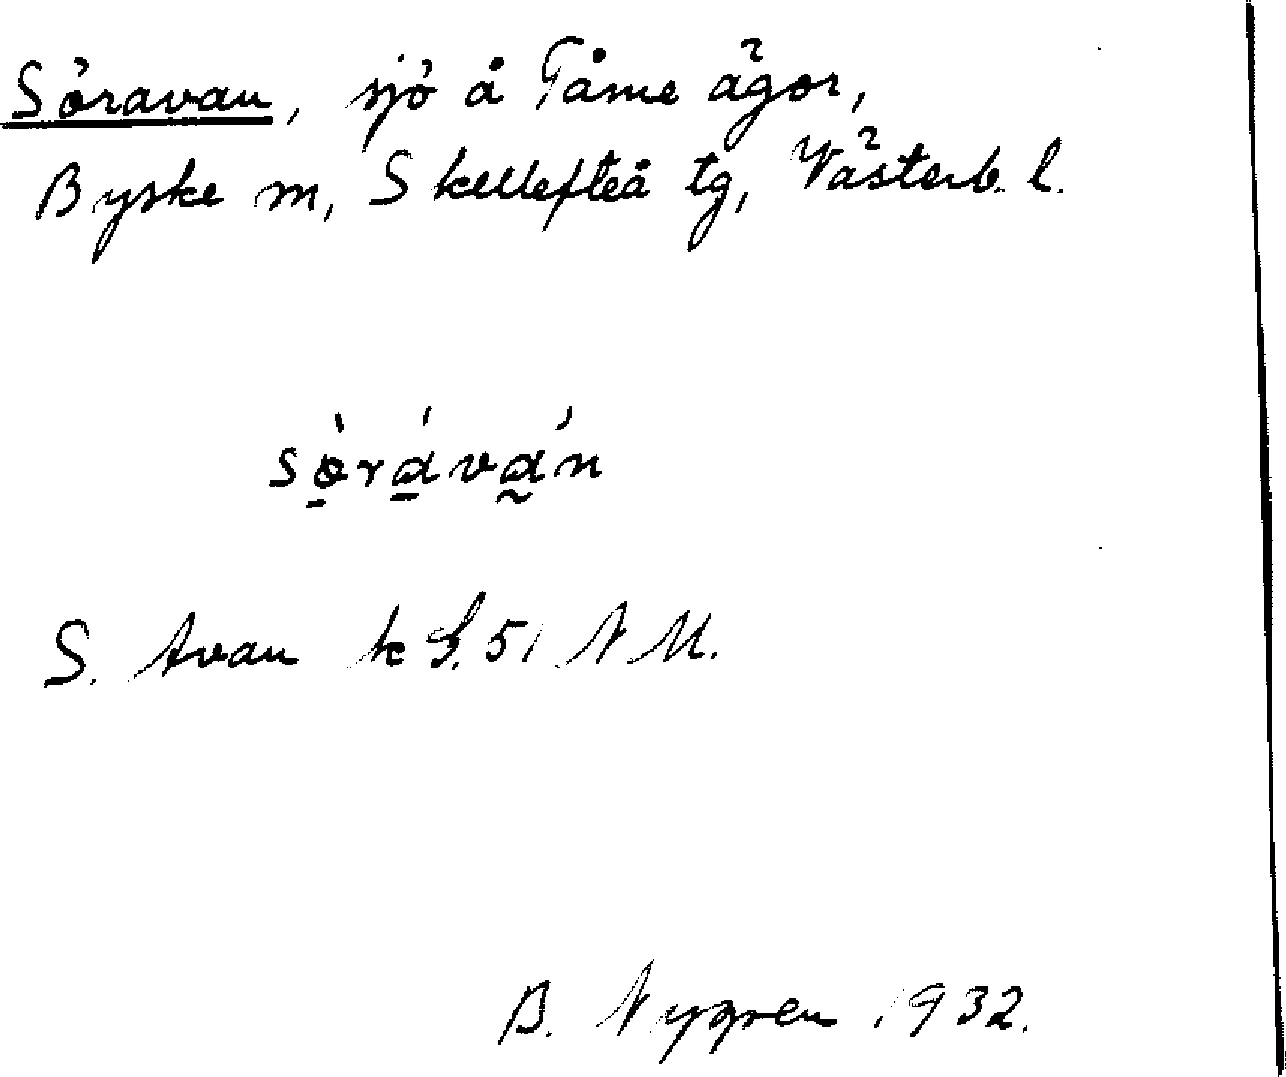 Söravan, sjö å Tåme ägor,
Byske sn, Skellefteå tg, Västerb. l.
sö̀ráván
S. Avan k S. 51 N M.
B. Nygren 1932.